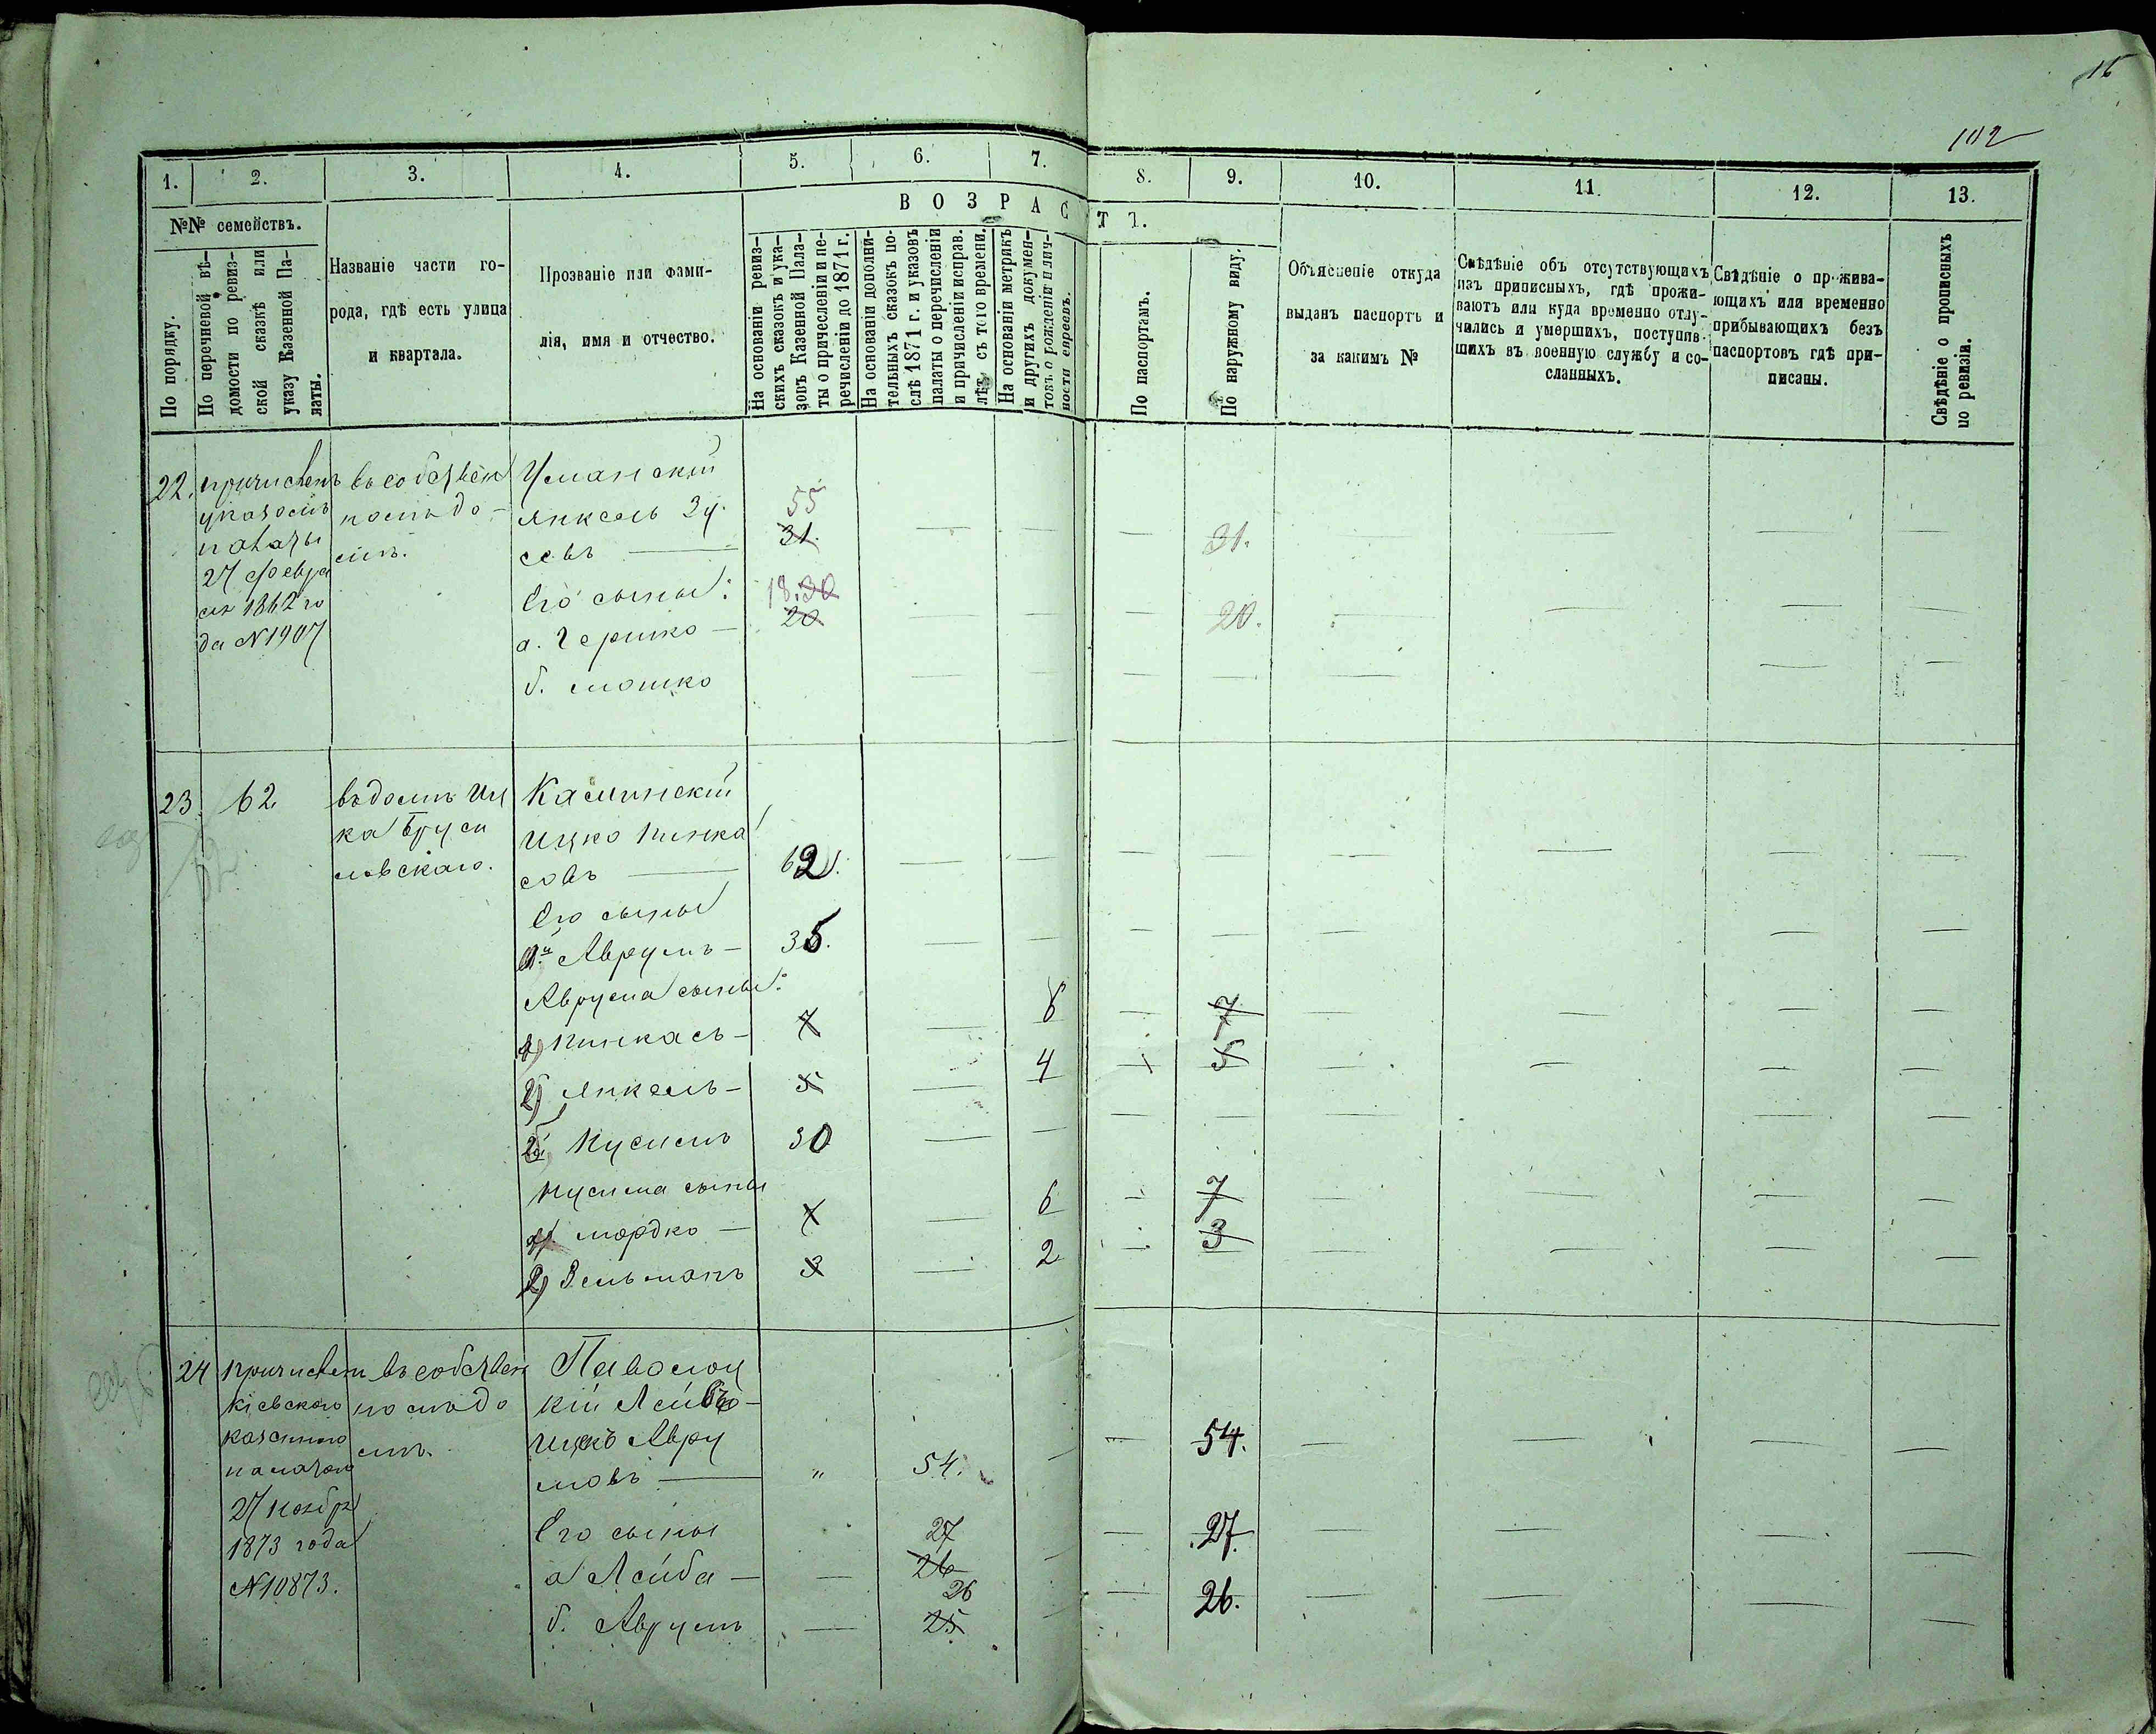 16
102
1.
2.
3.
4.
5.
6.
7.
8.
9.
10.
11.
12.
13.
№№ семействъ.
По порядку.
По перечневой вѣ-
домости по ревиз-
ской сказкѣ или
указу Казенной Па-
латы.
Названіе части го-
рода, гдѣ есть улица
и квартала.
Прозваніе или фами-
лія, имя и отчество.
ВОЗРАСТЪ.
На основаніи ревиз-
скихъ сказокъ и ука-
зовъ Казенной Пала-
ты о причесленіи и пе-
речисленіи до 1871 г.
На основаніи дополни-
тельныхъ сказокъ по-
слѣ 1871 г. и указовъ
палаты о перечисленіи
и причисленіи исправ.
лѣтъ съ того времени.
На основаніи метрикъ
и другихъ докумен-
товъ о рожденіи и лич-
ности евреевъ.
По паспортамъ.
По наружному виду.
Объясненіе откуда
выданъ паспортъ и
за какимъ №
Свѣдѣніе объ отсутствующихъ
изъ приписныхъ, гдѣ прожи-
ваютъ или куда временно отлу-
чились и умершихъ, поступив-
шихъ въ военную службу и со-
сланныхъ.
Свѣдѣніе о прожива-
ющихъ или временно
прибывающихъ безъ
паспортовъ гдѣ при-
писаны.
Свѣдѣніе о прописныхъ
по ревизіи.
22.
причисленъ
указомъ
палаты
27 февра
ля 1862 го
да №1907
въ собствен
номъ до-
мѣ.
Уманскій
Янкель Зу-
севъ — 55 31. 31.
Его сыны:
а. Гершко — 18. 30 20 20.
б. Мошко
23.
62
въ домѣ Иц
ка Бруси
ловскаго.
Каминскій
Ицко Пинка
совъ — 62.
Его сыны
1й Аврумъ — 35.
Аврума сыны:
1) Пинкасъ — 7 6 7
2) Янкель — 5 4 5
2й Нусимъ 30
Нусима сыны
1) Мордко — 7 6 7
2) Зельманъ 3 2 3
24
причислен
Кіевскою
казенною
палатою
27 ноября
1873 года
№10873.
въ собствен
номъ до
мѣ.
Паволоц
кій Лейбъ-
Ицекъ Авру
мовъ — " 54. 54.
Его сыны
а Лейба — — 27 26 27.
б. Аврумъ — 26 25 26.